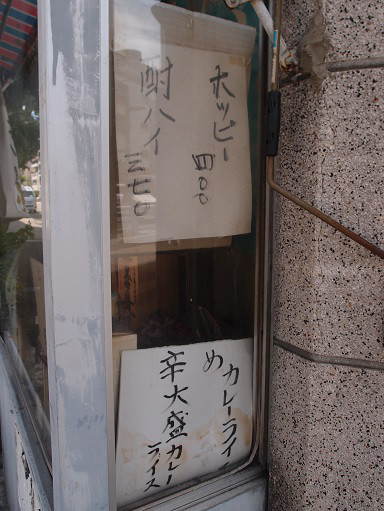 ホッピー 四〇〇
酎ハイ 三七〇
カレーライ
め
辛大盛カレー
ライス